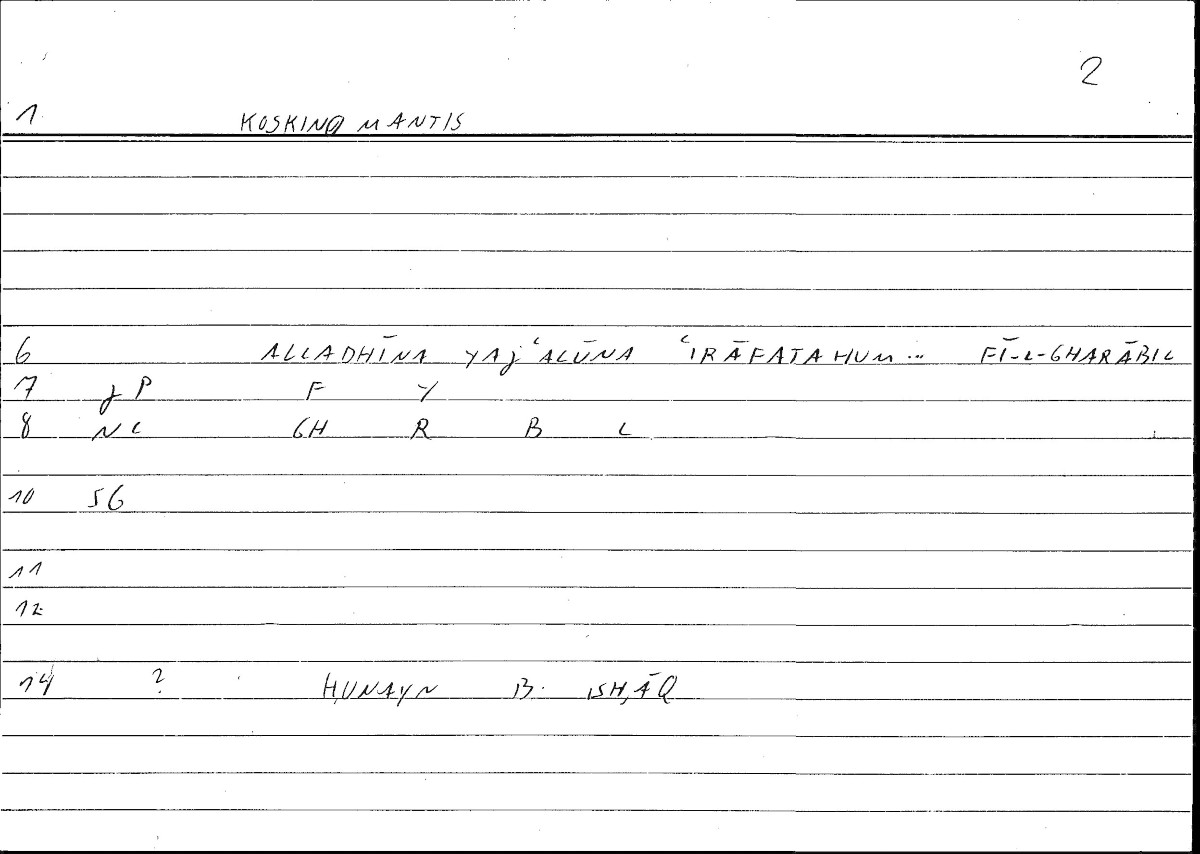 2
1 KOSKINO MANTIS
6 ALLADHĪNA YAJʿALŪNA ʿIRĀFATAHUM ... FĪ-L-GHARĀBIL
7 JP F Y
8 NC GH R B L
10 SG
11
12
14 ? ḤUNAYN B. ISḤĀQ